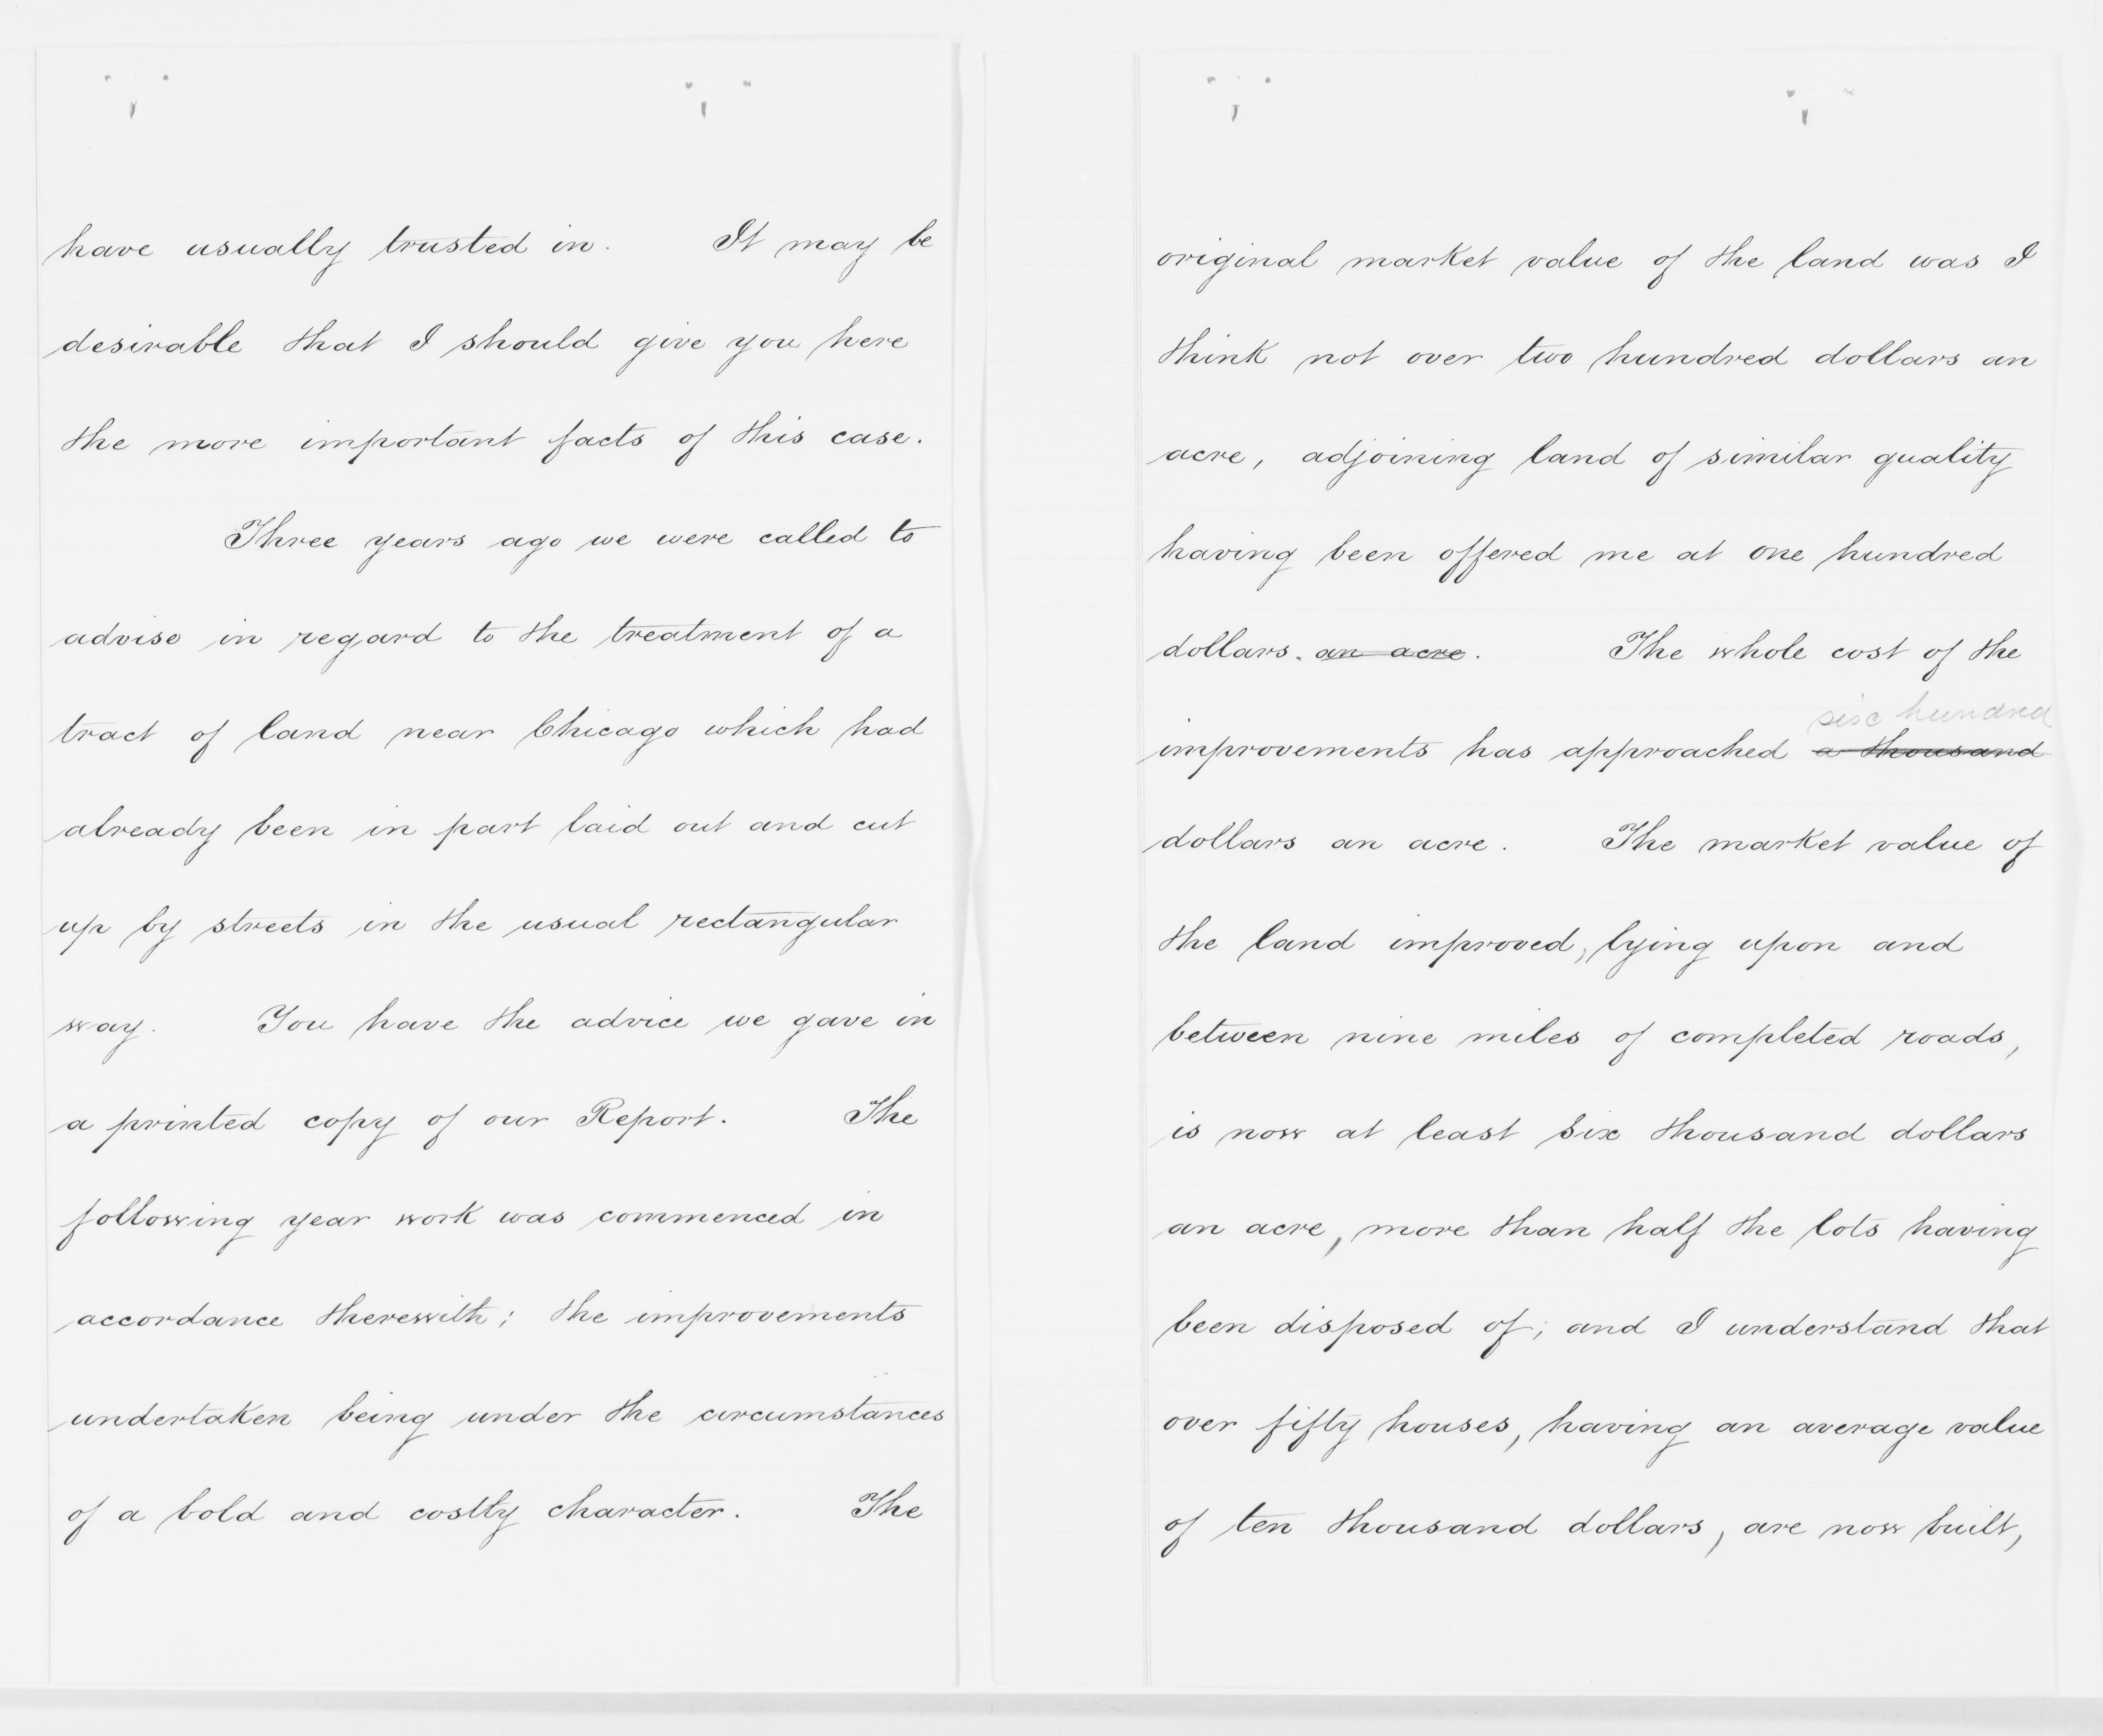 have usually trusted in. It may be
desirable that I should give you here
the more important facts of this case.
Three years ago we were called to
advise in regard to the treatment of a
tract of land near Chicago which had
already been in part laid out and cut
up by streets in the usual rectangular
way. You have the advice we gave in
a printed copy of our Report. The
following year work was commenced in
accordance therewith; the improvements
undertaken being under the circumstances
of a bold and costly character. The
original market value of the land was I
think not over two hundred dollars an
acre, adjoining land of similar quality
having been offered me at one hundred
dollars. an acre. The whole cost of the
six hundred
improvements has approached a thousand
dollars an acre. The market value of
the land improved, lying upon and
between nine miles of completed roads,
is now at least six thousand dollars
an acre, more than half the lots having
been disposed of; and I understand that
over fifty houses, having an average value
of ten thousand dollars, are now built,